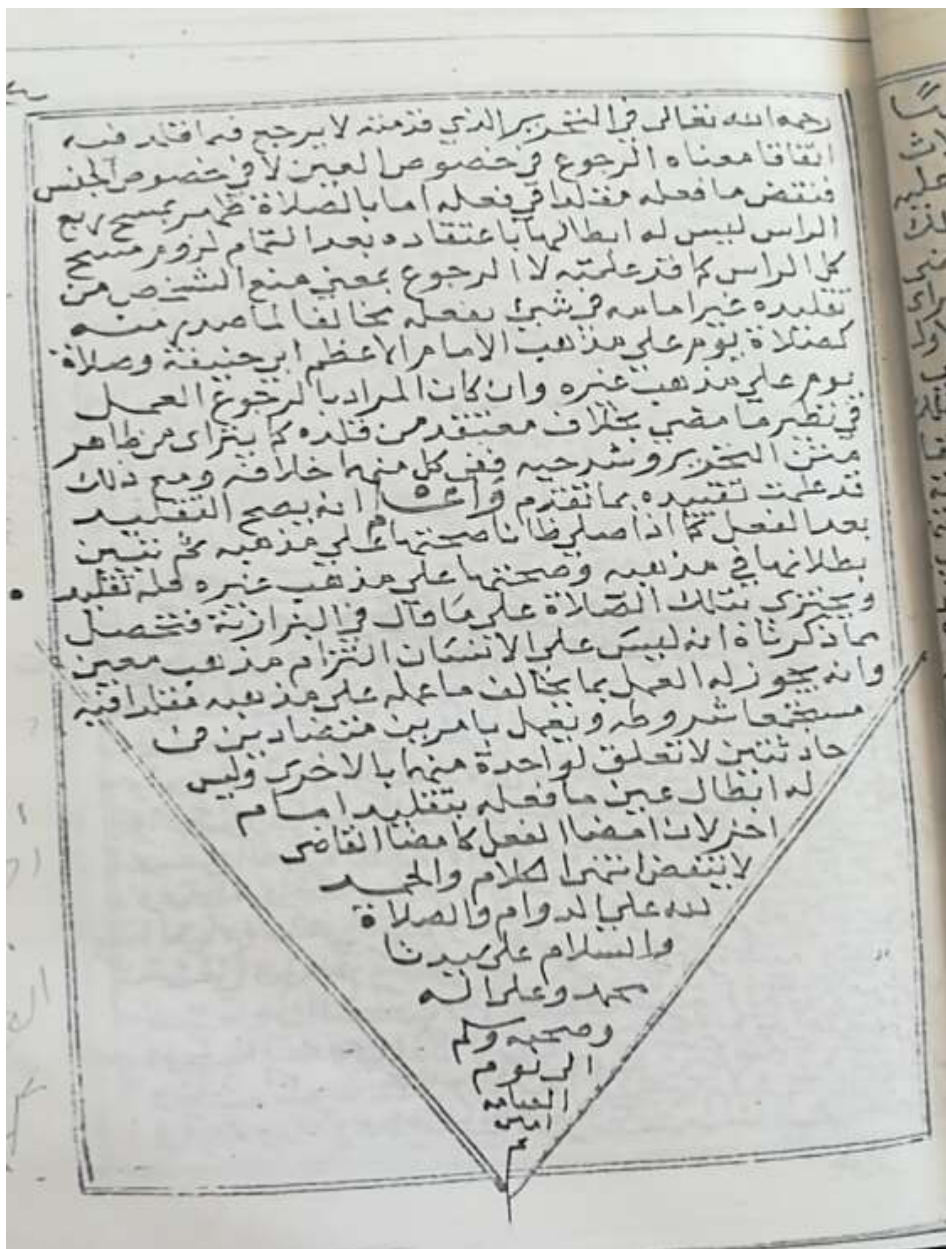 رحمه الله تعالى في التحرير الذي قدمته لا يرجع فيما قلد فيه
اتفاقا معناه الرجوع في خصوص العين لا في خصوص الجنس
فنقض ما فعله مقلدا في فعله اما بالصلاة ظهر بمسح ربع
الراس ليس له ابطالها باعتقاده بعد التمام لزوم مسح
كل الراس كما قد علمته لا الرجوع بمعنى منع الشخص من
تقليده غير امامه في شيئ يفعله مخالفا لما صدر منه
كصلاة يوم على مذهب الامام الاعظم ابي حنيفة وصلاة
يوم على مذهب غيره وان كان المراد بالرجوع العمل
في نظير ما مضى بخلاف معتقد من قلده كما يتراى من ظاهر
متن التحرير وشرحيه ففي كل منهما خلافه ومع ذلك
قد علمت تقييده بما تقدم واعلم انه يصح التقليد
بعد الفعل كما اذا صلى ظانا صحتها على مذهبه ثم تبين
بطلانها في مذهبه وصحتها على مذهب غيره فله تقليد
ويجتزي بتلك الصلاة على ما قال في البزازية فتحصل
بما ذكرناه انه ليس على الانسان التزام مذهب معين
وانه يجوز له العمل بما يخالف ما عمله على مذهبه مقلدا فيه
مستجمعا شروطه ويعمل بامرين متضادين في
حادثتين لا تعلق لواحدة منهما بالاخرى وليس
له ابطال عين ما فعله بتقليد امام
اخر لان امضا الفعل كامضا القاضي
لا ينتقض انتهى الكلام والحمد
لله على الدوام والصلاة
والسلام على سيدنا
محمد وعلى اله
وصحبه وسلم
الى يوم
القيامة